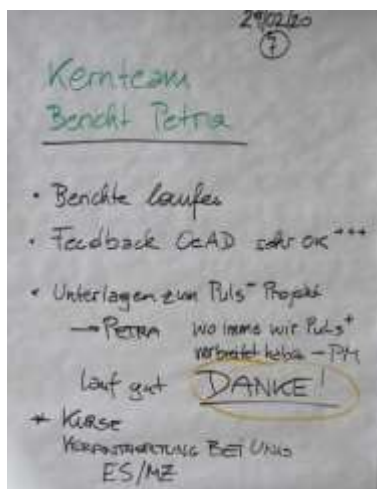 29/02/20
7
Kernteam
Bericht Petra
• Berichte laufen
• Feedback OeAD sehr OK +++
• Unterlagen zum Puls+ Projekt
→ PETRA wo immer wir Puls+
verbreitet haben – PM
lauf gut DANKE!
* KURSE
VERANTWORTUNG BEI UNS
ES/MZ